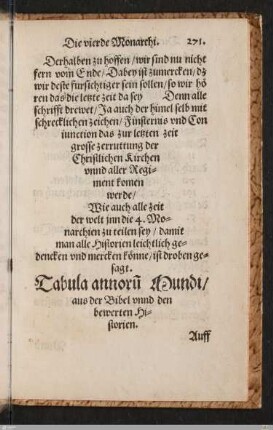 Die vierde Monarchi. 271.
Derhalben zu hoffen/ wir sind nu nicht
fern vom Ende/ Dabey ist zumercken/ dz
wir deste fursichtiger sein sollen/ so wir hö
ren das die letzte zeit da sey Denn alle
schrifft drewet/ Ja auch der himel selb mit
schrecklichen zeichen/ Fünsternis vnd Con
iunction das zur letzten zeit
grosse zerruttung der
Christlichen Kirchen
vnnd aller Regi-
ment komen
werde/
Wie auch alle zeit
der welt jnn die 4. Mo-
narchien zu teilen sey/ damit
man alle Historien leichtlich ge-
dencken vnd mercken könne/ ist droben ge-
sagt.
Tabula annorū Mundi/
aus der Bibel vnnd den
bewerten Hi-
storien.
Auff